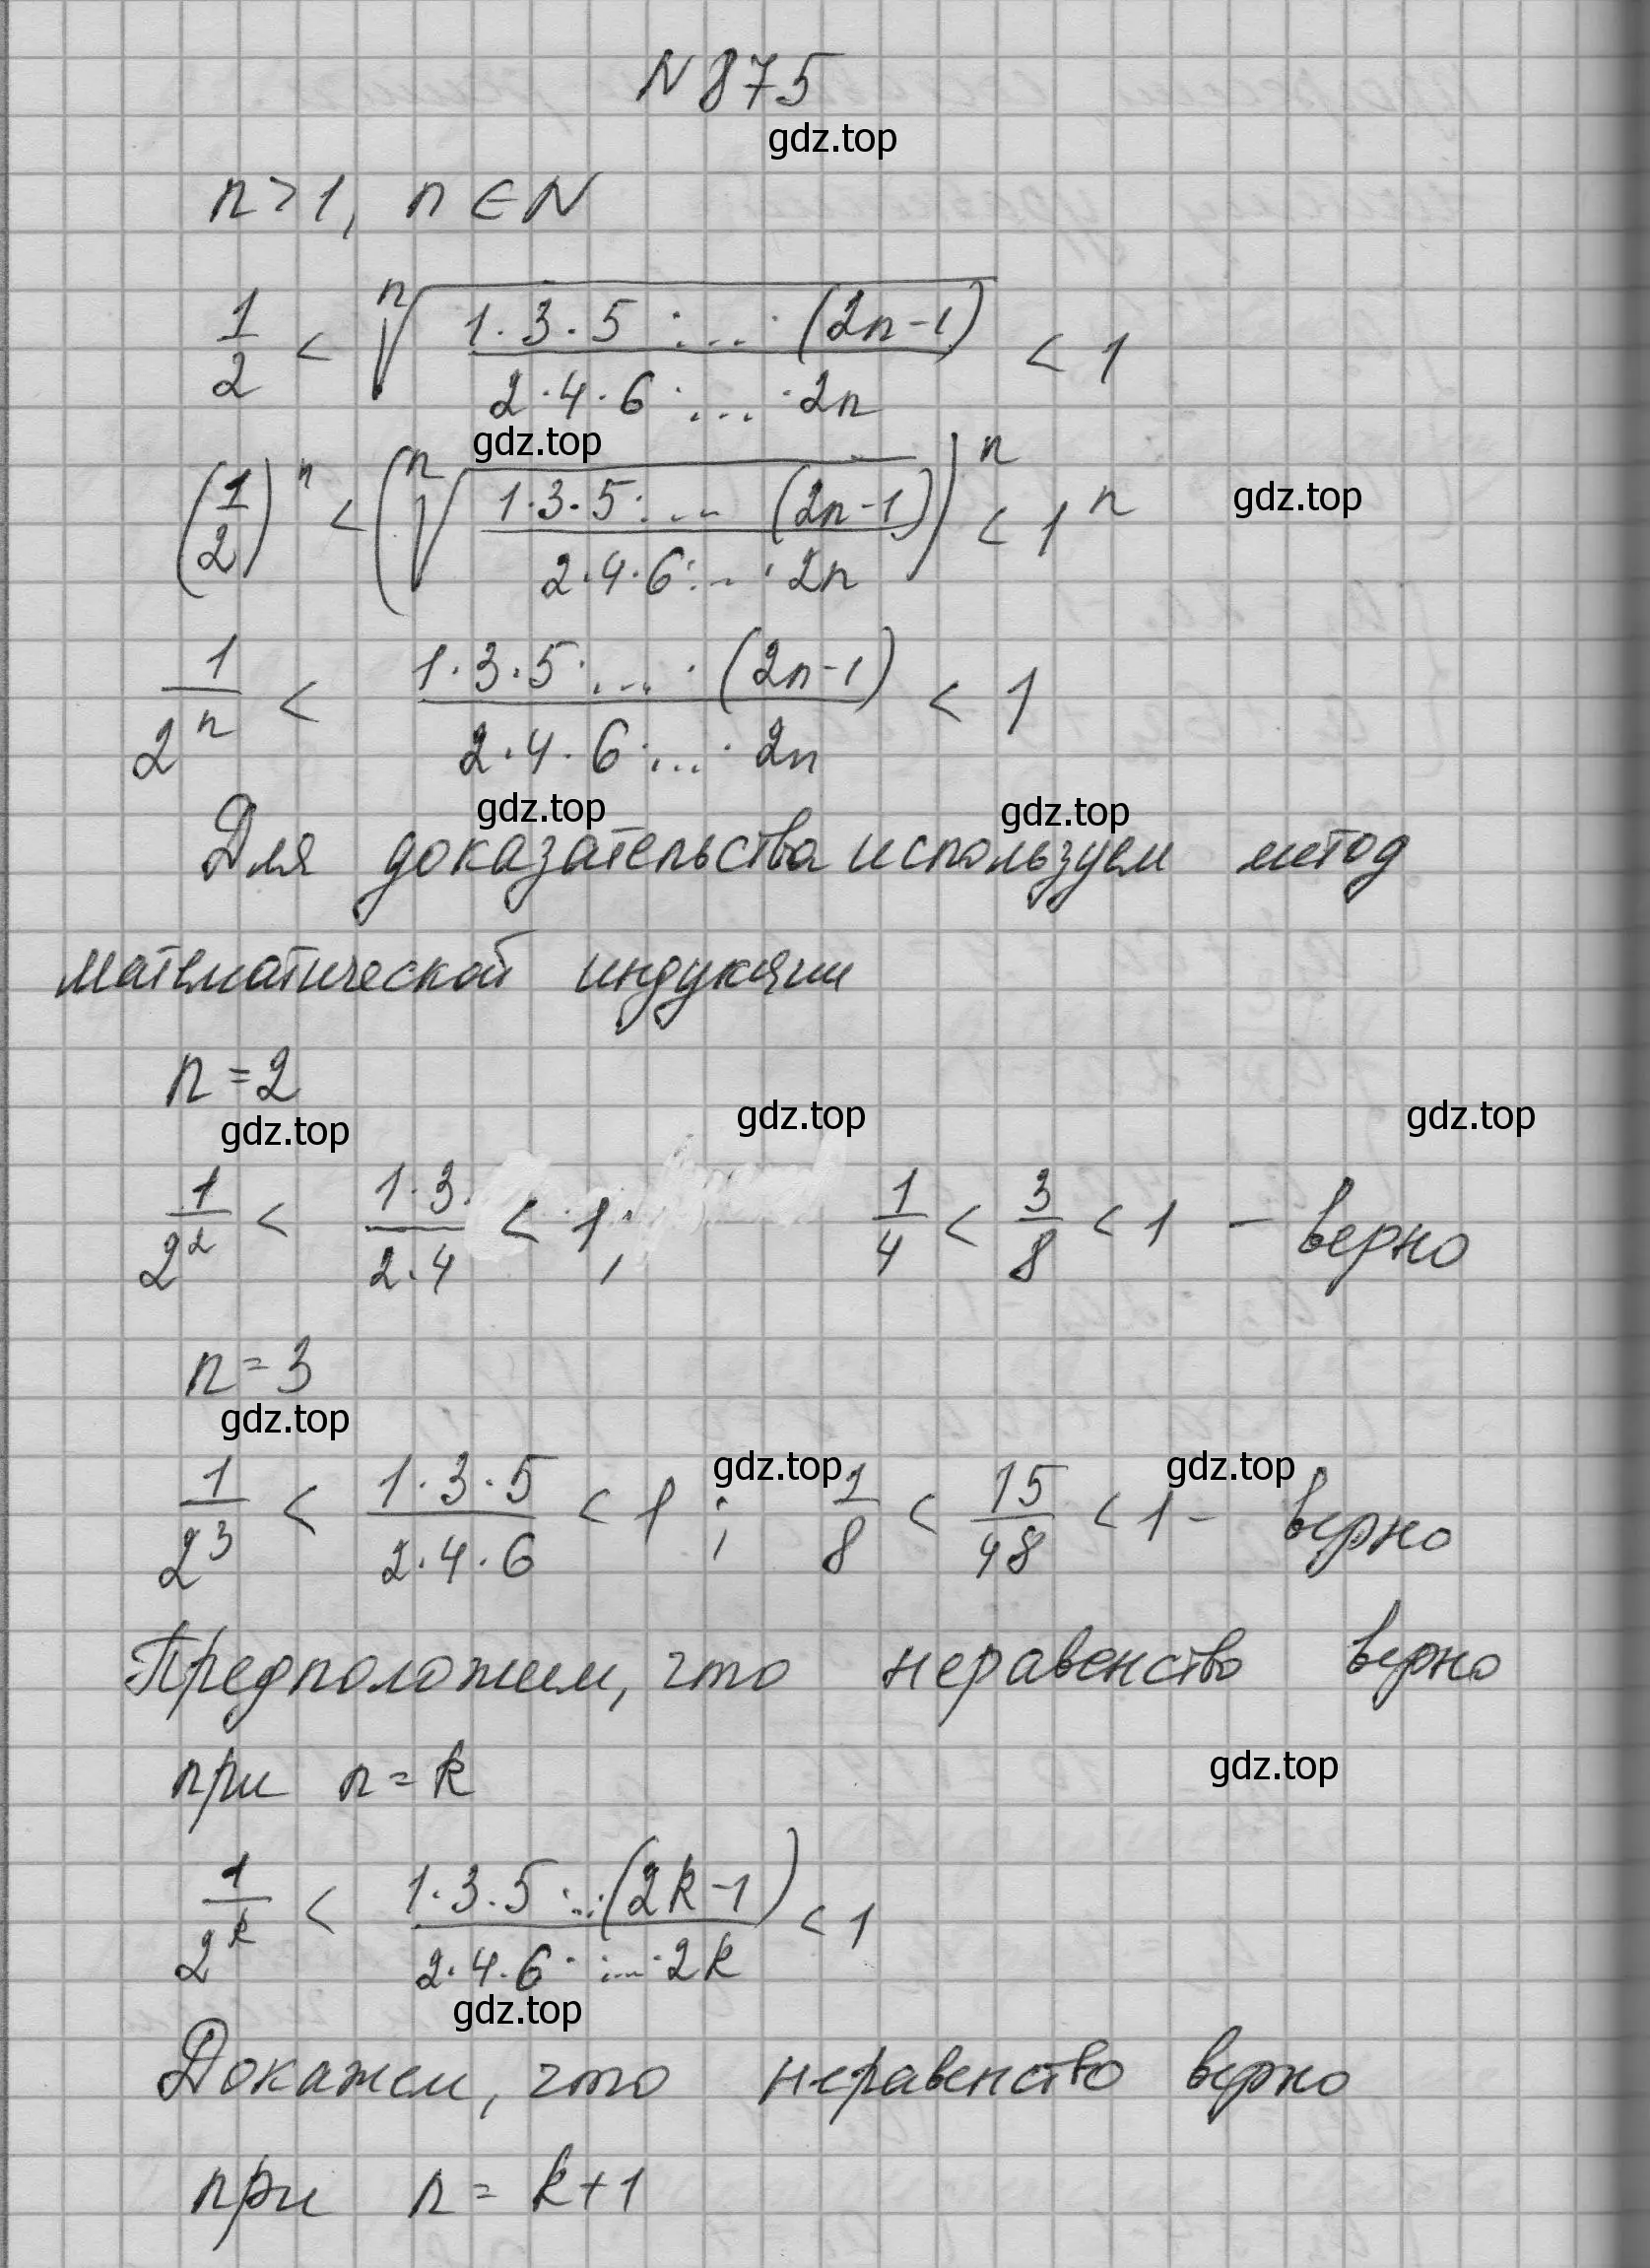 N 875
gdz.top
n > 1, n ∈ N
1/2 < ⁿ√(1·3·5·...·(2n-1) / 2·4·6·...·2n) < 1
gdz.top
(1/2)ⁿ < (ⁿ√(1·3·5·... (2n-1) / 2·4·6·...·2n))ⁿ < 1ⁿ gdz.top
1/2ⁿ < 1·3·5·...·(2n-1) / 2·4·6·...·2n < 1
gdz.top gdz.top
Для доказательства используем метод
математической индукции
n = 2
gdz.top gdz.top gdz.top
1/2² < 1·3· / 2·4 < 1; 1/4 < 3/8 < 1 - верно
n = 3
gdz.top
gdz.top gdz.top
1/2³ < 1·3·5 / 2·4·6 < 1; 1/8 < 15/48 < 1 - верно
Предположим, что неравенство верно
при n = k gdz.top
1/2ᵏ < 1·3·5·...(2k-1) / 2·4·6·...·2k < 1
gdz.top
Докажем, что неравенство верно
при n = k+1